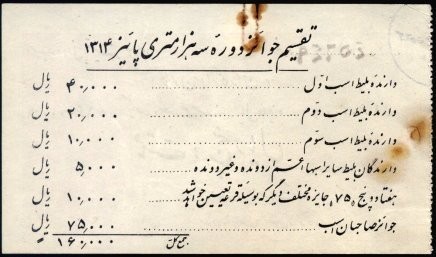 تقسیم جوائز دوره سه هزار متری پائیز ۱۳۱۴
دارندهٔ بلیط اسب اوّل ۴۰,۰۰۰ ریال
دارندهٔ بلیط اسب دوّم ۲۰,۰۰۰ ریال
دارندهٔ بلیط اسب سوّم ۱۰,۰۰۰ ریال
دارندگان بلیط سایر اسبها اعم از دونده و غیر دونده ۵,۰۰۰ ریال
هفتاد و پنج ۷۵ جایزه مختلف دیگر که بوسیله قرعه تعیین خواهد شد ۱۰,۰۰۰ ریال
جوائز صاحبان اسب ۷۵,۰۰۰ ریال
جمع کل ۱۶۰,۰۰۰